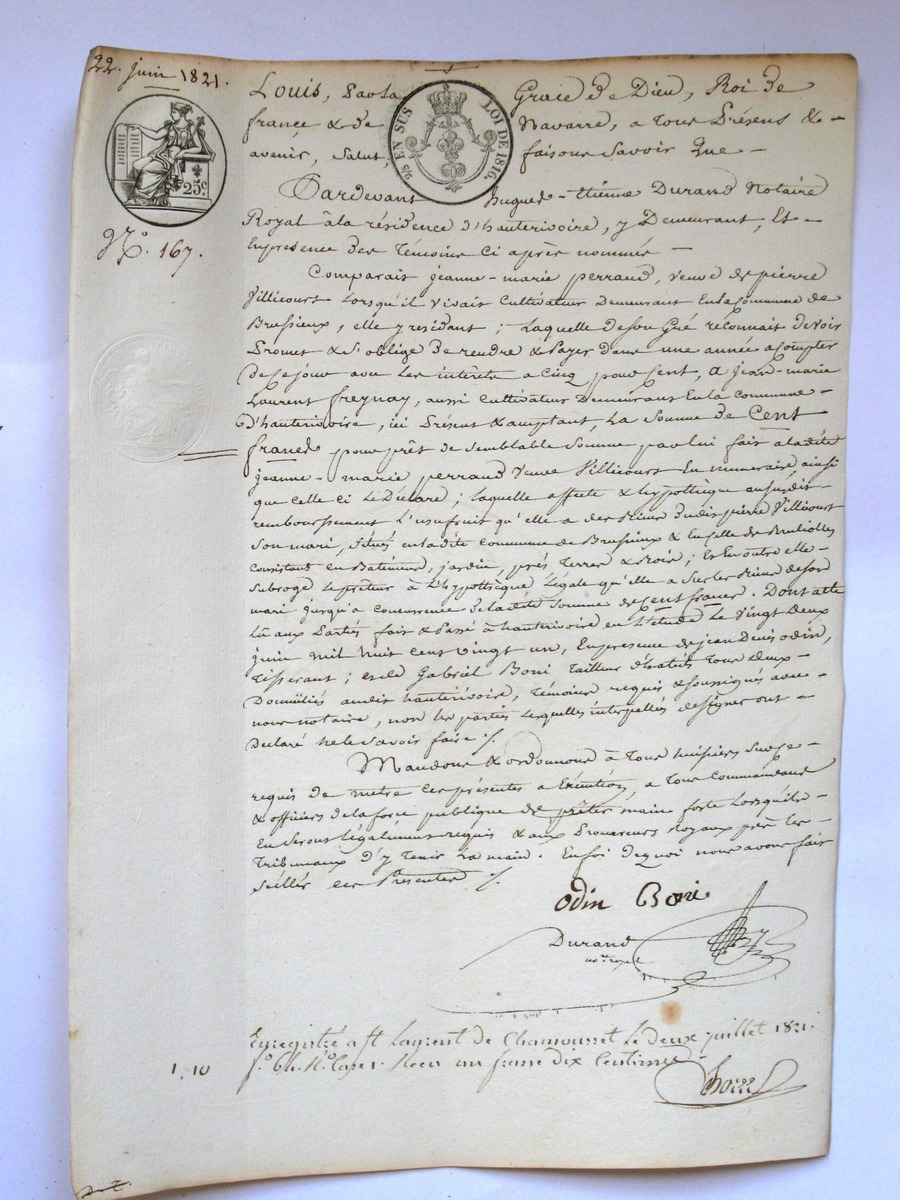 22. juin 1821.
Louis, par la Grace de Dieu, Roi de
france & de Navarre, a tous Présens &
avenir, Salut, faisons Savoir Que
25 EN SUS
LOI DE 1816.
25c.
N.o 167.
Pardevant hugues-étienne Durand Notaire
Royal à la résidence d'hauterivoire, y Demeurant, Et
En presence des témoins Ci après nommés
Comparait jeanne-marie perraud, veuve de pierre
Villicourt Lorsqu'il vivait Cultivateur Demeurant En la Commune de
Brussieux, elle y residant; Laquelle de son Gré réconnait devoir
Promet & s'oblige De rendre & Payer dans une année a Compter
de Ce jour avec les intérêts a Cinq pour Cent, a Jean-marie
Laurent freynay, aussi Cultivateur Demeurant En la commune
D'hauterivoire, ici Présent & acceptant, La Somme de Cent
francs pour prêt de Semblable Somme par lui fait a ladite
jeanne-marie perraud Veuve Villicourt En numeraire ainsi
que celle ci le Déclare; Laquelle affecte & hypothèque au susdit
remboursement L'usufruit qu'elle a des Biens dudit pierre Villicourt
Son mari, Situés en ladite Commune de Brussieux & En celle de
Consistant en Batimens, jardin, prés, terres & Bois; Et En outre elle
Subroge le prêteur à L'hypothèque Légale qu'elle a Sur les Biens de son
mari jusqu'a concurrence de ladite Somme de Cent francs. Dont acte
Lu aux Parties fait & Passé à hauterivoire en L'étude le Vingt Deux
juin mil huit Cent vingt un, En presence de jean Denis odin,
Tisserant; et de Gabriel Boni Tailleur d'habits tous deux
Domiciliés audit hauterivoire, témoins requis & soussignés avec
nous notaire, non les parties lesquelles interpellés de signer ont
Déclaré ne le Savoir faire ./.
Mandons & ordonnons à tous huissiers sur ce
requis de mettre ces présentes a Exécution, a tous Commandans
& officiers de la force publique de prêter main forte Lorsqu'ils
En seront légalement requis & aux Procureurs Royaux près les
Tribunaux D'y tenir La main. En foi de quoi nous avons fait
Sceller ces Presentes ./.
odin Boni
Durand
no.re royal
Enregistré a St Laurent de Chamousset le deux juillet 1821.
Recu un franc dix Centimes
1,10